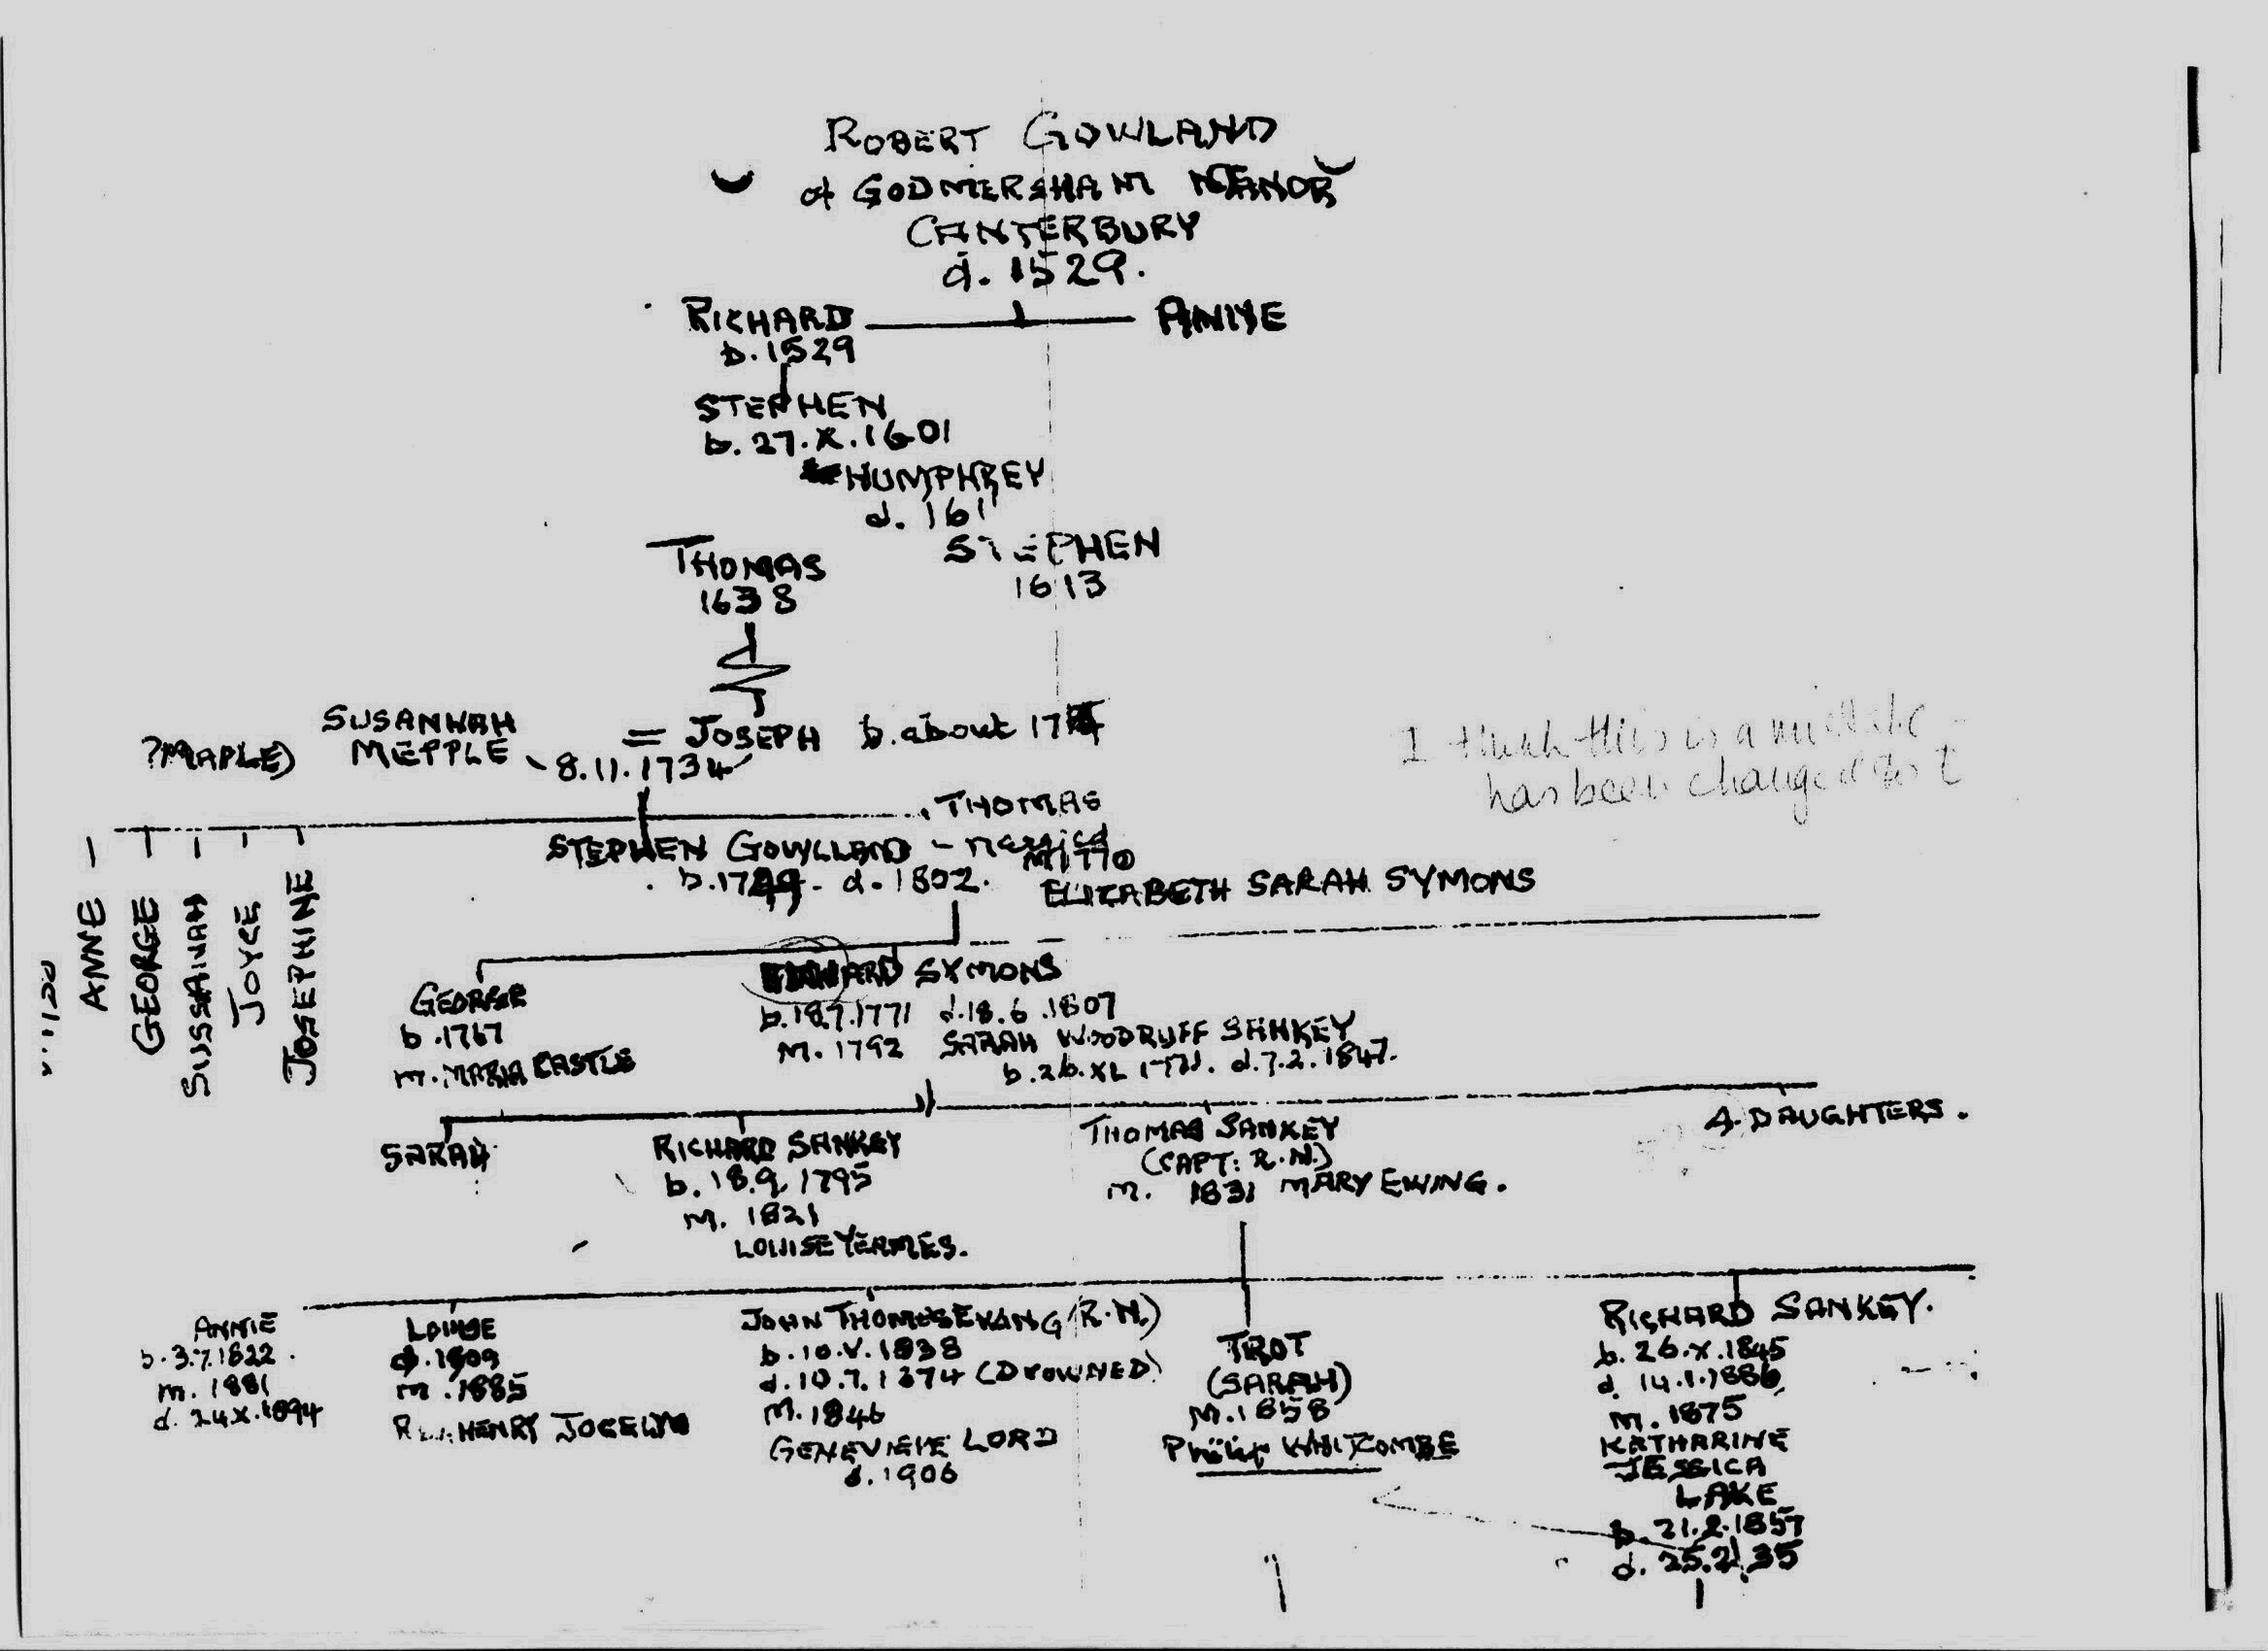 ROBERT GOWLAND
of GODMERSHAM MANOR
CANTERBURY
d. 1529.
RICHARD
b. 1529
STEPHEN
b. 27.X.1601
HUMPHREY
d. 161
STEPHEN
1613
THOMAS
1638
SUSANNAH
MEPPLE
?MAPLE)
= JOSEPH b. about
8.11.1734
I think this is a mistake -
has been changed
THOMAS
STEPHEN GOWLLAND - married
M1770
d. 1802.
ELIZABETH SARAH SYMONS
ANNE
GEORGE
SUSSANAH
JOYCE
JOSEPHINE
GEORGE
b. 1767
m. MARIA CASTLE
SYMONS
b. 18.7.1771 d. 18.6.1807
M. 1792 SARAH WOODRUFF SANKEY
d. 7.2.1847.
SARAH
RICHARD SANKEY
b. 18.9.1795
M. 1821
LOUISE YERMES.
THOMAS SANKEY
(CAPT: R.N.)
M. 1831 MARY EWING.
4 DAUGHTERS.
ANNIE
b. 3.7.1822.
m. 1881
d. 24.X.1894
LOUISE
d. 1909
m. 1885
HENRY JOCELYN
JOHN THOMAS EWANG (R.N.)
b. 10.V.1838
d. 10.7.1874 (DROWNED)
M. 1846
GENEVIEVE LORD
d. 1906
TROT
(SARAH)
M. 1858
Philip WHITCOMBE
RICHARD SANKEY.
b. 26.X.1845
d. 14.1.1886
m. 1875
KATHARINE
JESSICA
LAKE
b. 21.2.1857
d. 25.2.35